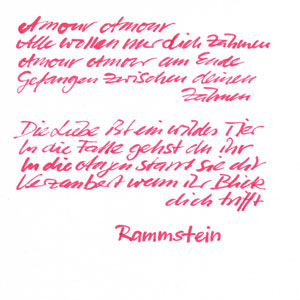 Amour Amour
Alle wollen nur dich zähmen
Amour Amour am Ende
Gefangen zwischen deinen
Zähnen
Die Liebe ist ein wildes Tier
In die Falle gehst du ihr
In die Augen starrt sie dir
Verzaubert wenn ihr Blick
dich trifft
Rammstein